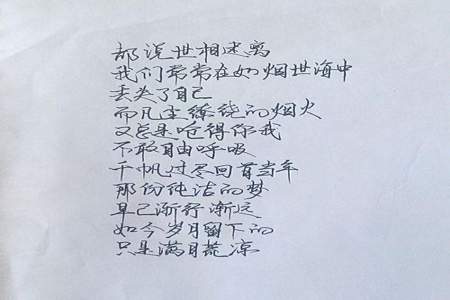 都说世相迷离
我们常常在如烟世海中
丢失了自己
而凡尘缭绕的烟火
又总是呛得你我
不敢自由呼吸
千帆过尽回首当年
那份纯洁的梦
早已渐行渐远
如今岁月留下的
只是满目荒凉